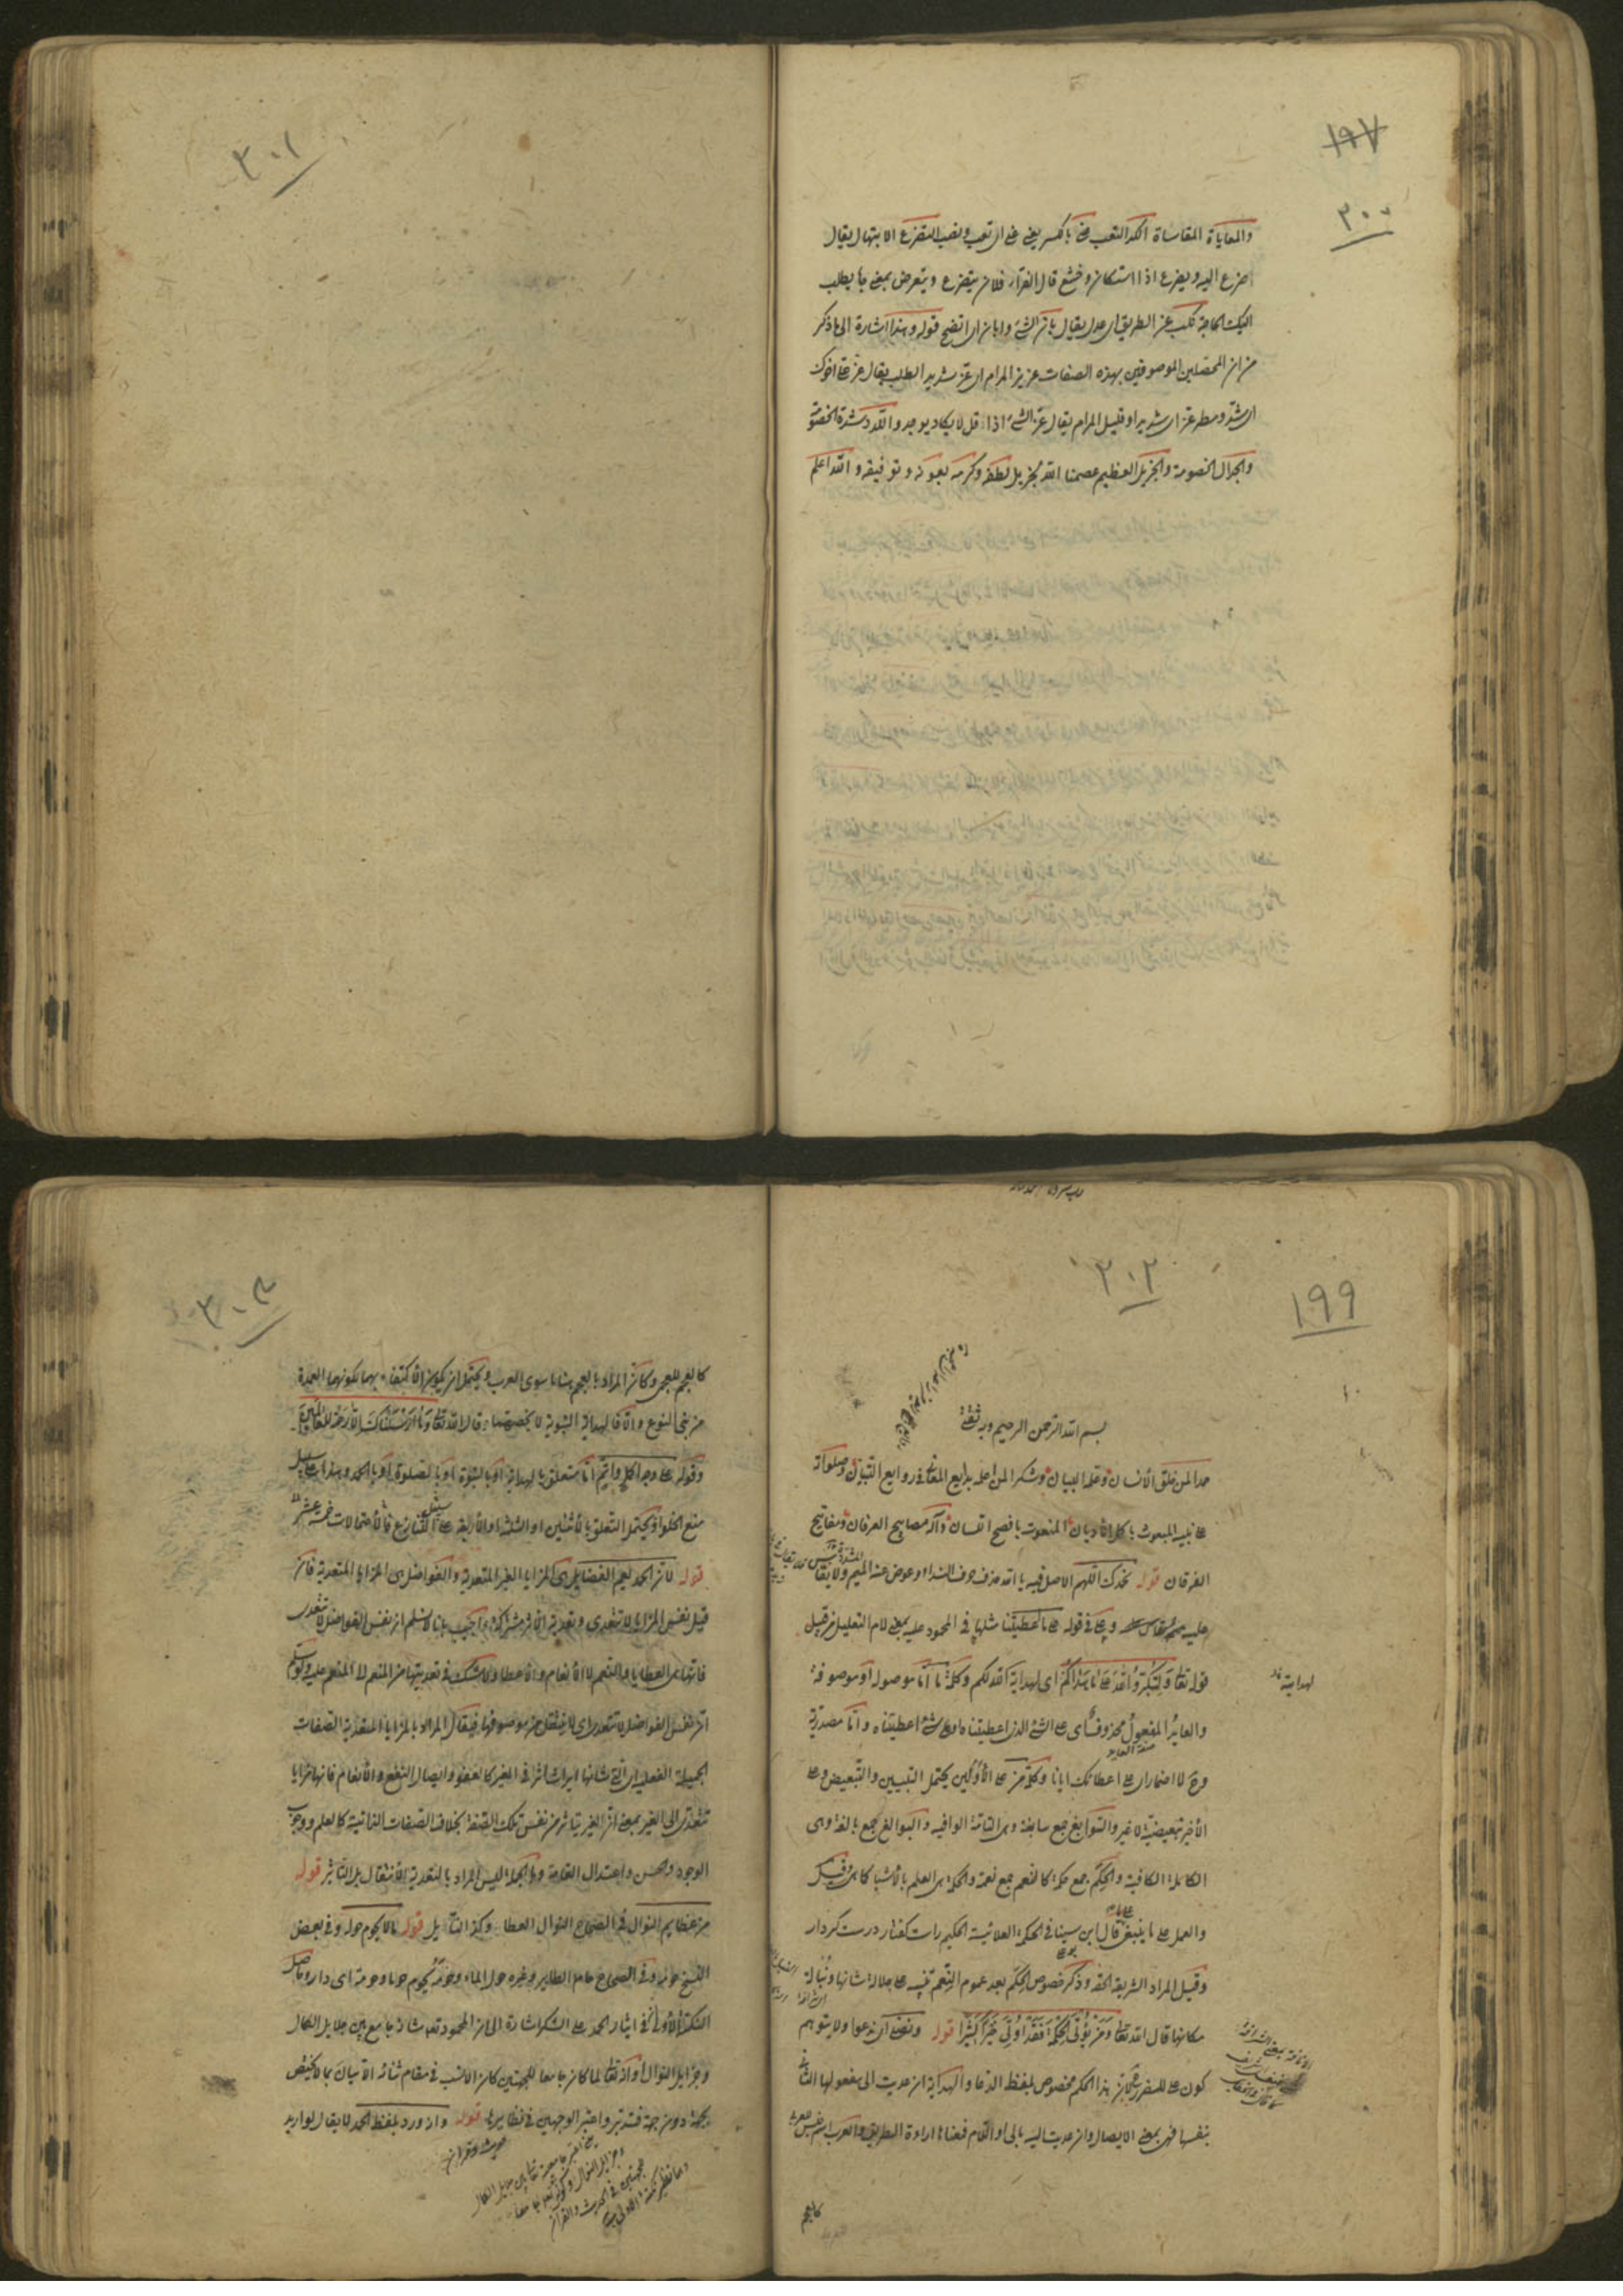 ١٩٧
٣٠٠
والمعاياة المقاساة الكد التعب عنى بالكسر يعنى عنى اى تعب ونصب التضرع الابتهال يقال
ضرع اليه ويضرع اذا استكان وخشع قال الفراء فلان يتضرع ويتعرض بمعنى جاء يطلب
اليك الحاجة نكب عن الطريق اى عدل يقال بان الشئ وابان اى اتضح قوله وهذا اشارة الى ما ذكر
من ان المحصلين الموصوفين بهذه الصفات عزيز المرام اى عز شديد الطلب يقال عز على اخوك
اى شتد ومطر عز اى شديد او قليل المرام يقال عز الشئ اذا قل لا يكاد يوجد واللدد شدة الخصومة
والجدال الخصومة والجزيل العظيم عصمنا الله بجزيل لطفه وكرمه بعونه وتوفيقه والله اعلم
٣٠١
١٩٩
٣٠٢
بسم الله الرحمن الرحيم وبه ثقتى
حمدا لمن خلق الانسان وعلمه البيان وشكرا لمن اعلمه بدايع المعانى فى روايع التبيان وصلواته
على نبيه المبعوث باكمل الاديان المنعوت بافصح اللسان وآله مصابيح العرفان ومفاتيح
الفرقان قوله نحمدك اللهم الاصل فيه يا الله حذف حرف النداء وعوض عنه الميم ولا يقاس
عليه وعلى فى قوله على ما اعطيتنا مثلها فى المحمود عليه بمعنى لام التعليل من قبيل
قوله تعالى ولتكبروا الله على ما هداكم اى لهداية الله لكم وكلمة ما اما موصولة او موصوفة
والعايد المفعول محذوف اى على الشئ الذى اعطيتناه او على شئ اعطيتناه واما مصدرية
وح لا اضمار اى على اعطائك ايانا وكلمة من على الاولين يحتمل التبيين والتبعيض وعلى
الاخير تبعيضية لا غير والسوابغ جمع سابغة وهى التامة الوافية والبوالغ جمع بالغة وهى
الكاملة الكافية والحكم جمع حكمة كالنعم جمع نعمة والحكمة هى العلم بالاشياء كما هى
والعمل على ما ينبغى قال ابن سينا فى الحكمة العلائية الحكيم راست گفتار درست كردار
وقيل المراد الشريعة الحقة وذكر خصوص الحكم بعد عموم النعم تنبيه على جلالة شانها ونباهة
مكانها قال الله تعالى ومن يؤتى الحكمة فقد اوتى خيرا كثيرا قوله ونصلى اى ندعوا ولا يتوهم
كون على للضرر فان هذا الحكم مخصوص بلفظ الدعا والهداية ان عديت الى مفعولها الثانى
بنفسها فهى بمعنى الايصال وان عديت اليه بالى او اللام فمعناها اراءة الطريق والعرب اسم جنس للعربى
كالعجم
لهدايته
٣٠٣
كالعجم للعجمى وكان المراد بالعجم هنا ما سوى العرب ويحتمل ان يكون الاكتفاء بهما لكونهما العمدة
من بنى النوع والا فالهداية النبوية لا يخصهما قال الله تعالى وما ارسلناك الا رحمة للعالمين
وقوله على وجه اكمل واتم اما متعلق بالهداية او بالنبوة او بالصلوة او بالحمد وهذا على سبيل
منع الخلو او يحتمل التعلق بالاثنين او الثلثة او الاربعة على سبيل التنازع فالاحتمالات خمسة عشر
قوله لان الحمد يعم الفضايل اى المزايا الغير المتعدية والفواضل اى المزايا المتعدية فان
قيل نفس المزايا لا تتعدى وتعدية الاثر مشتركة اجيب بانا لا نسلم ان نفس الفواضل لا تتعدى
فانها هى العطايا والنعم لا الانعام والاعطا ولا شك فى تعديتها من المنعم الى المنعم عليه ولو سلم
ان نفس الفواضل لا تتعدى اى لا ينتقل من موصوفها فيقال المراد بالمزايا المتعدية الصفات
الجميلة الفعلية اى التى شانها ايراث اثر فى الغير كالعفو وايصال النفع والانعام فانها مزايا
تتعدى الى الغير بمعنى ان الغير يتاثر من نفس تلك الصفة بخلاف الصفات الذاتية كالعلم ووجوب
الوجود والحسن واعتدال القامة وبالجملة ليس المراد بالتعدية الانتقال بل التاثير قوله
من عظايم النوال فى الصحاح النوال العطا وكذا النائل قوله ما لا يحوم حوله وفى بعض
النسخ حومه وفى الصحاح حام الطاير وغيره حول الماء وحومة يحوم حوما وحومة اى دار وحاصل
النكتة الاولى فى ايثار الحمد على الشكر اشارة الى ان المحمود تعالى شانه جامع بين جلايل الكمال
وجزايل النوال واذ تعالى لما كان جامعا للجهتين كان الانسب فى مقام ثنائه الاتيان بما لا يختص
بجهة دون جهة فتدبر واعتبر الوجهين فى نظايرها قوله واذ ورد بلفظ الحمد لا يقال لو اريد